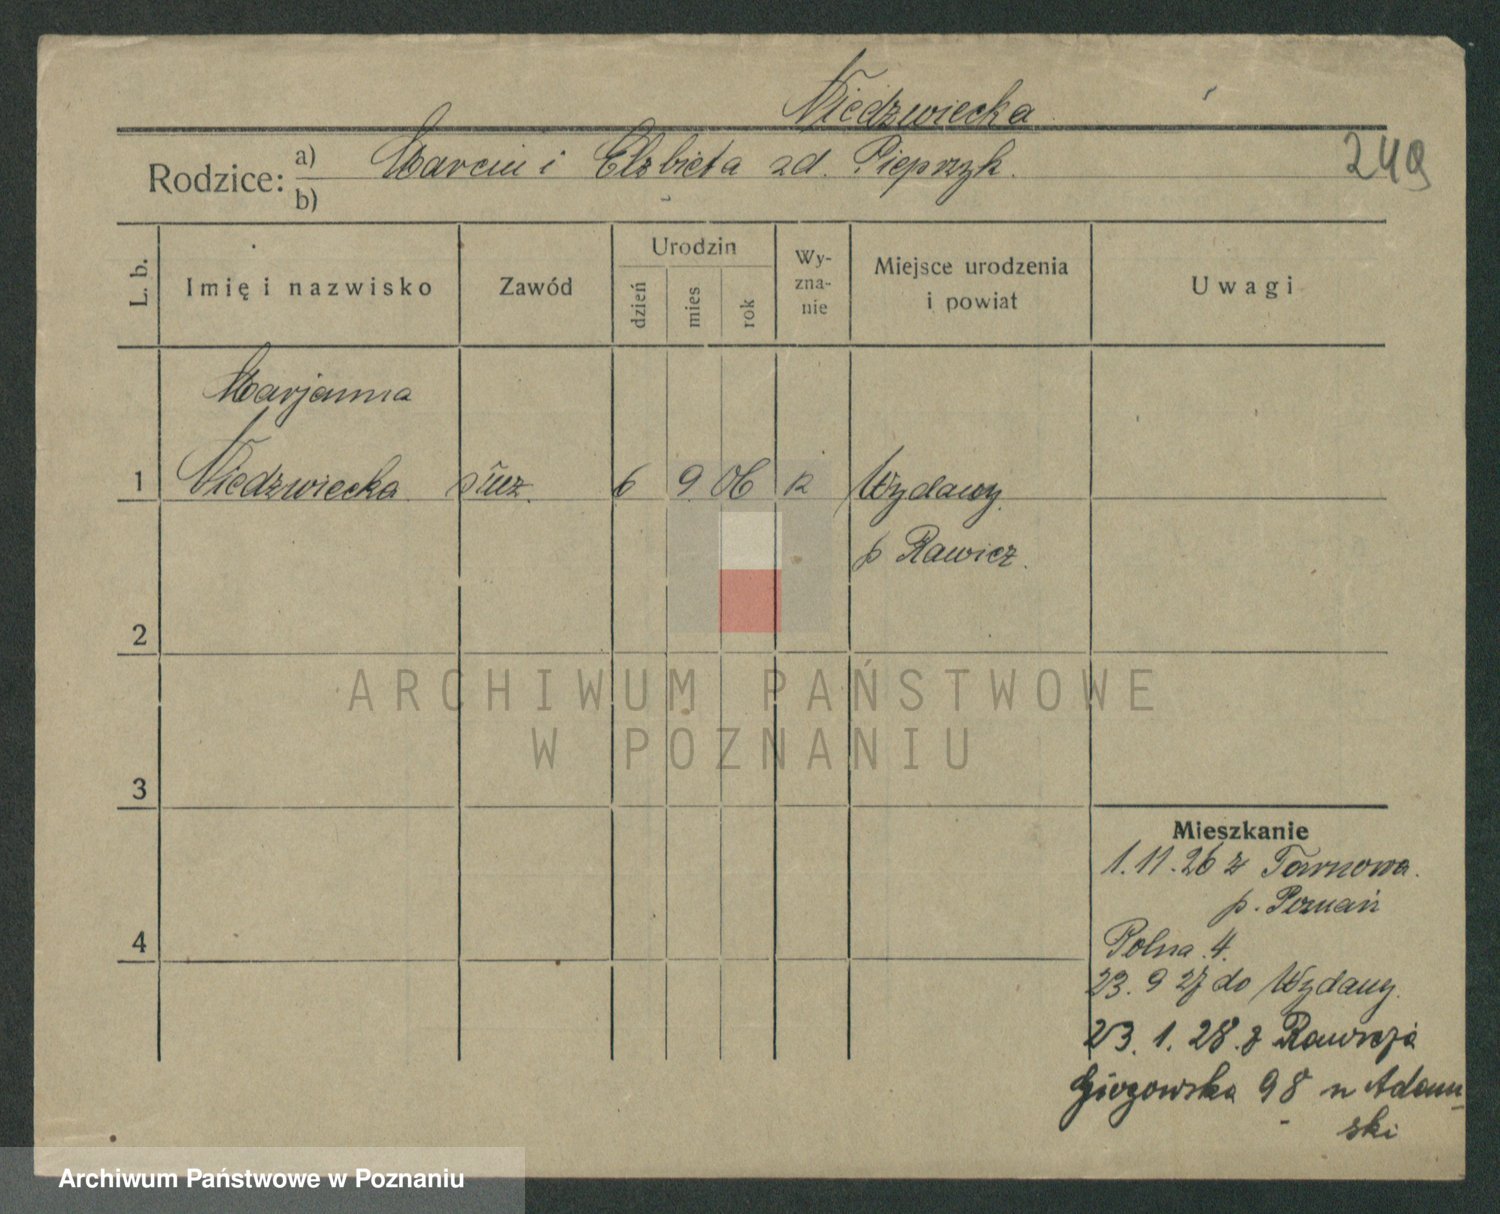 Niedzwiecka
Rodzice: a) Marcin i Elzbieta zd. Pieprzyk.
b)
249
L. b.
Imię i nazwisko
Zawód
Urodzin
dzień
mies
rok
Wy-
zna-
nie
Miejsce urodzenia
i powiat
Uwagi
Marjanna
1 Niedzwiecka 6 9 06 Wydawy
p Rawicz.
2
3
4
Mieszkanie
1.11.26 z Tarnowa.
p. Poznań
Polna 4.
23. 9 27 do Wydawy.
23. 1. 28. z Rawicza
98 n Adam-
ski
ARCHIWUM PAŃSTWOWE
W POZNANIU
Archiwum Państwowe w Poznaniu